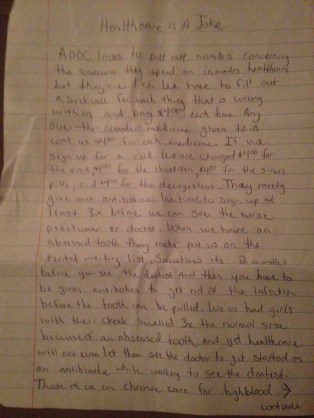 Healthcare is A Joke
ADOC loves to put out numbers concerning
the amount they spend on inmates healthcare
but they lie. We have to fill out
a sick call for each thing that is wrong
with us and pay $4.00 each time. Any
over-the counter medicine given to us
cost us $4.00 for each medicine. If we
sign up for a cold we are charged $4.00 for
the visit, $4.00 for the ibuprofen, $4.00 for the sinus
pills, and $4.00 for the decongestion. They rarely
give out antibiotics. We have to sign up at
least 3x before we can see the nurse
practitioner or doctor. When we have an
abscessed tooth they make put us on the
dental waiting list. Sometimes its 2 months
before you see the dentist and then you have to
be given antibiotics to get rid of the infection
before the tooth can be pulled. We've had girls
with their cheek swelled 3x the normal size
because of an abscessed tooth and yet healthcare
will not even let them see the doctor to get started on
an antibiotic while waiting to see the dentist.
Those of us on chronic care for highblood →
continue